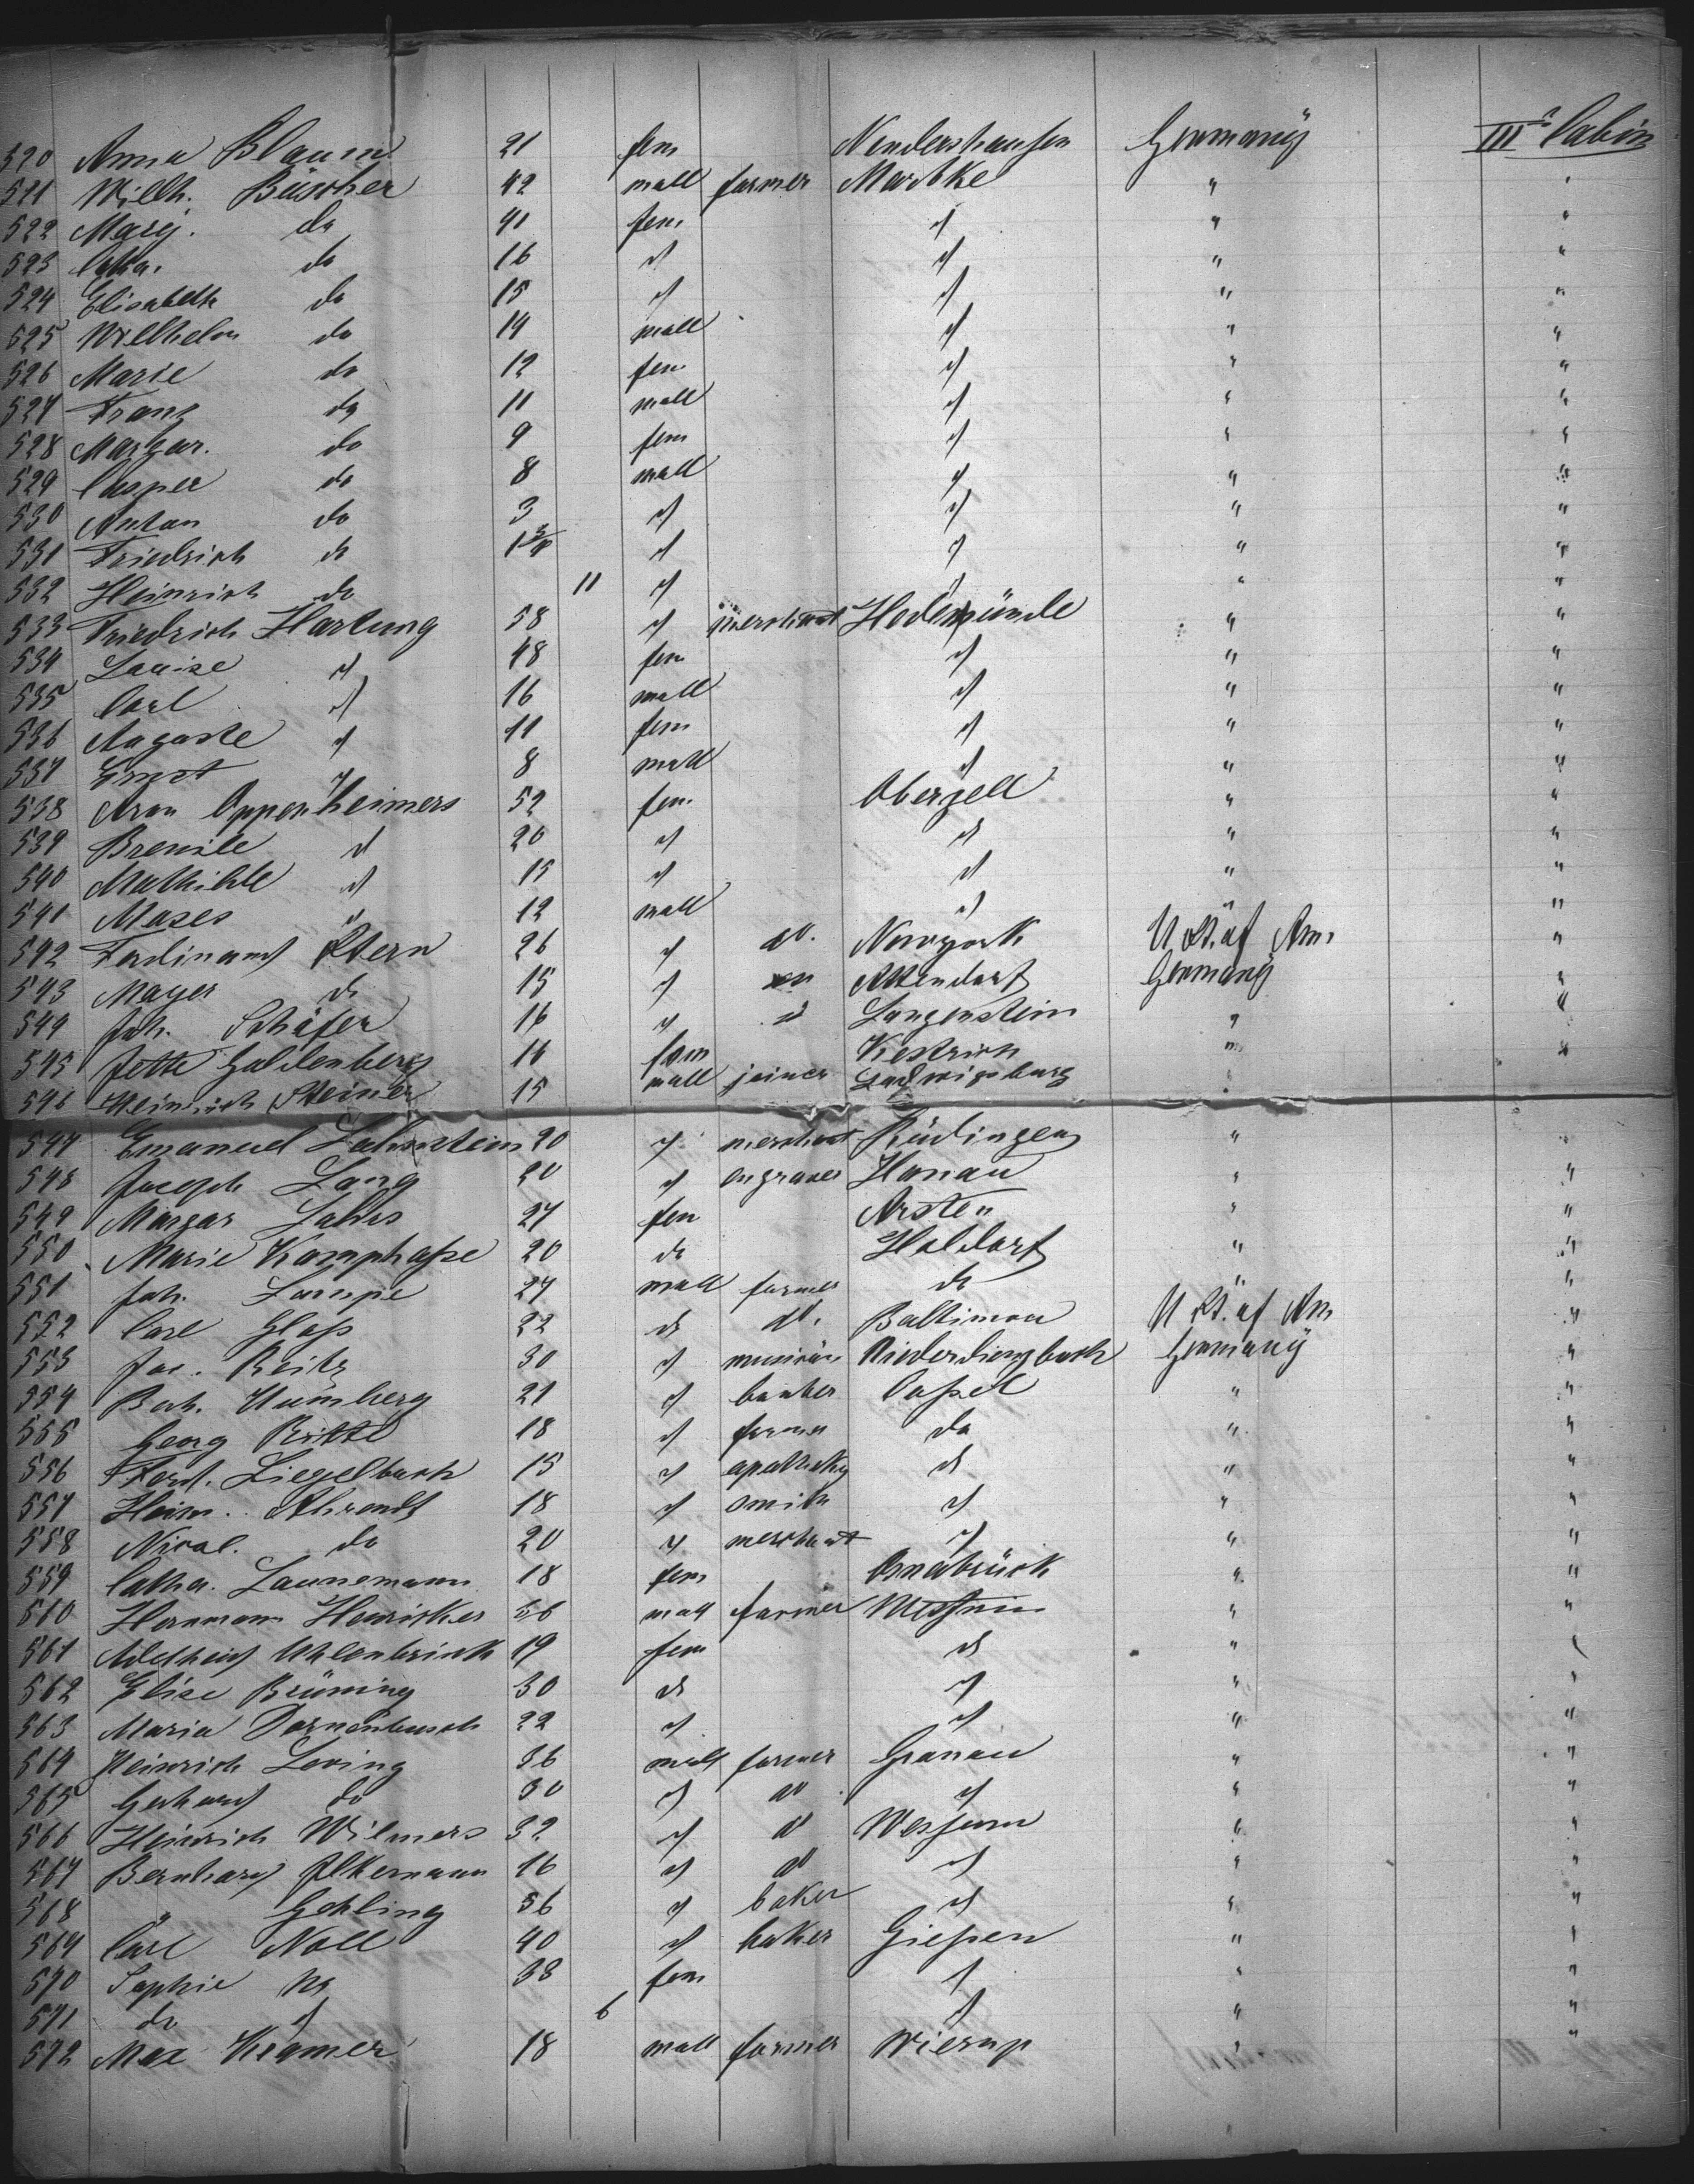 520 Anna Blaum 21 fem Nendershausen Germany III Cabin
521 Wilh. Büscher 42 mall farmer Marbke " "
522 Marg. do 41 fem " " "
523 Cath. do 16 " " " "
524 Elisabeth do 15 " " " "
525 Wilhelm do 14 mall " " "
526 Marie do 12 fem " " "
527 Franz do 11 mall " " "
528 Margar. do 9 fem " " "
529 Casper do 8 mall " " "
530 Anton do 3 " " " "
531 Friedrich do 1 3/4 " " " "
532 Heinrich do 11 " " " "
533 Friedrich Hartung 58 " merchant Hedemünde " "
534 Louise " 48 fem " " "
535 Carl " 16 mall " " "
536 Auguste " 11 fem " " "
537 Ernst " 8 mall " " "
538 Aron Oppenheimers 52 fem Oberzell " "
539 Breunle " 20 " " " "
540 Mathilde " 15 " " " "
541 Moses " 12 mall " " "
542 Ferdinand Stern 26 " do. Newyork U St. of Am. "
543 Mayer do 15 " " Attendorf Germany "
544 Joh. Schäfer 16 " " Langenstein " "
545 Jette Goldenberg 14 fem Kestrich " "
546 Heinrich Steiner 15 mall joiner Ludwigsburg "
547 Emanuel 20 " merchant Büdingen " "
548 Joseph Lang 20 " engraver Hanau " "
549 Margar Lahrs 27 fem Arsten " "
550 Marie Kamphaße 20 do Holdorf " "
551 Joh. Lampe 27 mall farmer do " "
552 Carl Glaß 22 do do. Baltimore U St. of Am "
553 Jac. Reitz 30 " musician Germany "
554 Humberg 21 " banker Caßel " "
555 Georg Britte 18 " farmer do " "
556 Ferd. Ziegelbach 15 " apotheky do " "
557 Heinr. Ahrendt 18 " smith " " "
558 Nicol. do 20 " merchant " " "
559 Catha. Launemann 18 fem Osnabrück " "
560 Hermann Henricker 56 mall farmer " "
561 Adelheid Uhlenbrink 19 fem do " "
562 Elise Brüning 30 do " " "
563 Maria Dornenbusch 22 " " " "
564 Heinrich Loving 36 mall farmer Gronau " "
565 Gerhard do 30 " do " " "
566 Heinrich Wilmers 32 " do Wessum " "
567 Bernhard Ilkemann 16 " do " " "
568 " Gehling 56 " baker " " "
569 Carl Noll 40 " baker Gießen " "
570 Sophie do 38 fem " " "
571 do " 6 " " "
572 Max Kramer 18 mall farmer Wierup " "